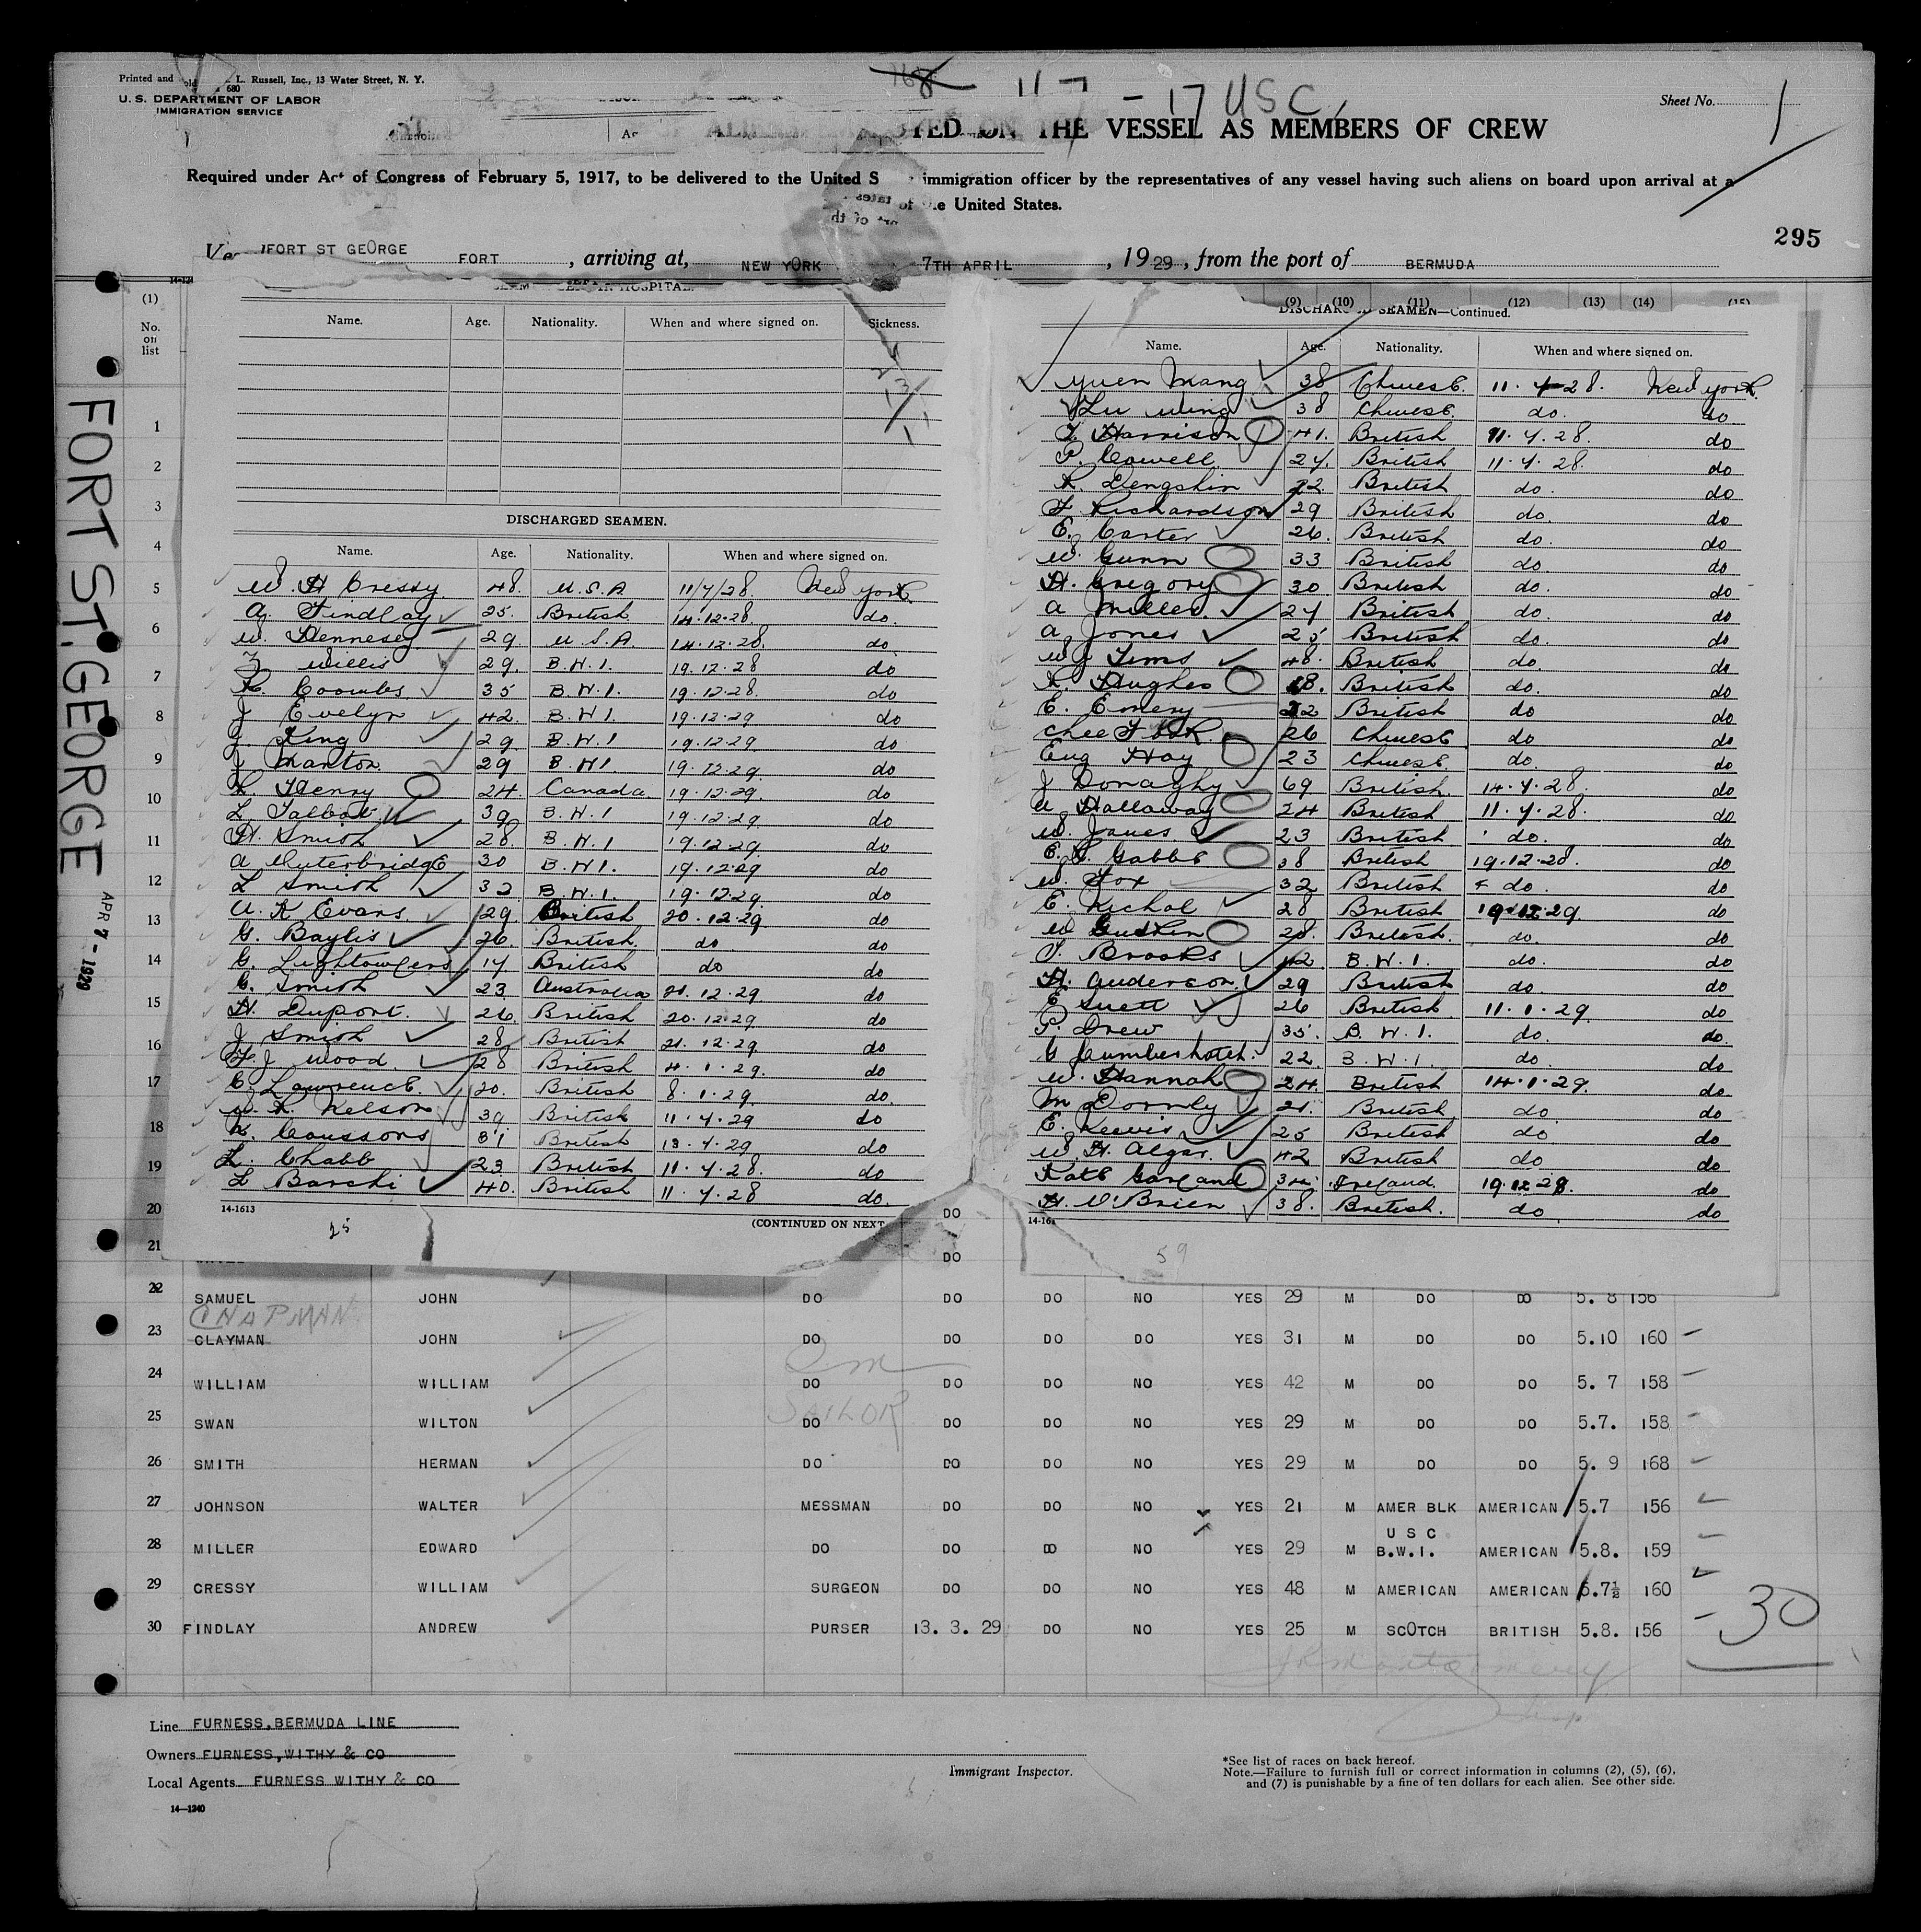 Printed and L. Russell, Inc., 13 Water Street, N. Y.
680
U. S. DEPARTMENT OF LABOR
IMMIGRATION SERVICE
168 11 - 17 USC
Sheet No. 1
ON THE VESSEL AS MEMBERS OF CREW
Required under Act of Congress of February 5, 1917, to be delivered to the United S immigration officer by the representatives of any vessel having such aliens on board upon arrival at a
the United States.
295
FORT ST GEORGE FORT , arriving at, NEW YORK 7TH APRIL , 1929 , from the port of BERMUDA
FORT ST. GEORGE
APR 7 - 1929
(1)
No. on list
Name. Age. Nationality. When and where signed on. Sickness.
DISCHARGED SEAMEN.
Name. Age. Nationality. When and where signed on.
W. H Cressy 48. U.S.A 11/4/28. New York.
A. Findlay 25. British 14.12.28 do.
W. Hennesey 29 U.S.A. 14.12.28. do
Willis 29. B.W.I. 19.12.28 do
R. Coombs 35 B.W.I. 19.12.28. do
J Evelyn 42. B.W.I. 19.12.29 do
J. King 29 B.W.I 19.12.29 do
J Manton 29 B.W.I. 19.12.29. do
Henny 24. Canada 19.12.29. do
L. Talbot 39 B.W.I 19.12.29 do
H. Smith 28. B.W.I 19.12.29. do
A Outerbridge 30 B.W.I. 19.12.29 do
L Smith 32 B.W.I. 19.12.29. do
A. K Evans. 29. British 20.12.29 do
G. Baylis 26. British. do do
G. Lightowlers 17 British do do
C. Smith 23 Australia 21.12.29 do
H. Duport. 26. British 20.12.29 do
J Smith 28 British 21.12.29. do
F. J Wood. 28 British 4.1.29. do
C. Lawrence. 20. British 8.1.29. do.
W. R. Nelson 39. British 11.4.29 do
Coussons 31 British 13.4.29 do
L. Chabb 23 British 11.4.28. do
L Barchi 40. British 11.4.28 do.
14-1613
(CONTINUED ON NEXT
25
(9) (10) (11) (12) (13) (14) (15)
DISCHARGED SEAMEN—Continued.
Name. Age. Nationality. When and where signed on.
Yuen Mang 38 Chinese. 11.4.28. New York.
Lu Wing 38 Chinese. do. do.
Harrison 41. British 11.4.28. do
P. Cowell 24. British 11.4.28. do
R. Dengshin 22 British do. do
F. Richardson 29 British do. do
E. Carter 26. British do. do
W. Gunn 33 British do. do
H. Gregory 30 British do. do
A Miller. 24 British do. do
A. Jones 25 British do. do
W J Tims 48. British do. do
Hughes 18. British do. do
E. Emery 22 British do do
Chee Fook 26 Chinese do do
Eng Hoy 23 Chinese. do. do
J Donaghy 69 British. 14.4.28. do
Hallaway 24 British 11.4.28. do
W. Janes 23 British do. do
E. Gabbe 38 British 19.12.28. do
W. Fox 32 British do. do
E. Nichol 28 British 19.12.29. do
28. British. do. do
T. Brooks 42 B.W.I. do. do
H. Anderson. 29 British do. do
E Suett 26 British 11.1.29 do
P. Drew 35. B.W.I. do. do.
G Cumberbatch. 22. B.W.I. do do
W. Hannah 24. British 14.1.29. do.
M Dornly 21. British. do do
E. Reevis 25 British do do
W. H. Algar. 42 British do do
Kate Garland 34. Ireland. 19.12.28. do
H. O'Brien 38. British. do do
59
1
2
3
4
5
6
7
8
9
10
11
12
13
14
15
16
17
18
19
20 DO
21 DO
22 SAMUEL JOHN DO DO DO NO YES 29 M DO DO 5. 8 156
CHAPMAN
23 CLAYMAN JOHN DO DO DO DO YES 31 M DO DO 5.10 160
24 WILLIAM WILLIAM DO DO DO NO YES 42 M DO DO 5. 7 158
SAILOR
25 SWAN WILTON DO DO DO NO YES 29 M DO DO 5.7. 158
26 SMITH HERMAN DO DO DO NO YES 29 M DO DO 5. 9 168
27 JOHNSON WALTER MESSMAN DO DO NO YES 21 M AMER BLK AMERICAN 5.7 156
U S C
28 MILLER EDWARD DO DO DO NO YES 29 M B.W.I. AMERICAN 5.8. 159
29 CRESSY WILLIAM SURGEON DO DO NO YES 48 M AMERICAN AMERICAN 5.7½ 160
30 FINDLAY ANDREW PURSER 13. 3. 29 DO NO YES 25 M SCOTCH BRITISH 5.8. 156
30
Line FURNESS,BERMUDA LINE
Owners FURNESS,WITHY & CO
Local Agents FURNESS WITHY & CO
14—1240
Immigrant Inspector.
*See list of races on back hereof.
Note.—Failure to furnish full or correct information in columns (2), (5), (6),
and (7) is punishable by a fine of ten dollars for each alien. See other side.